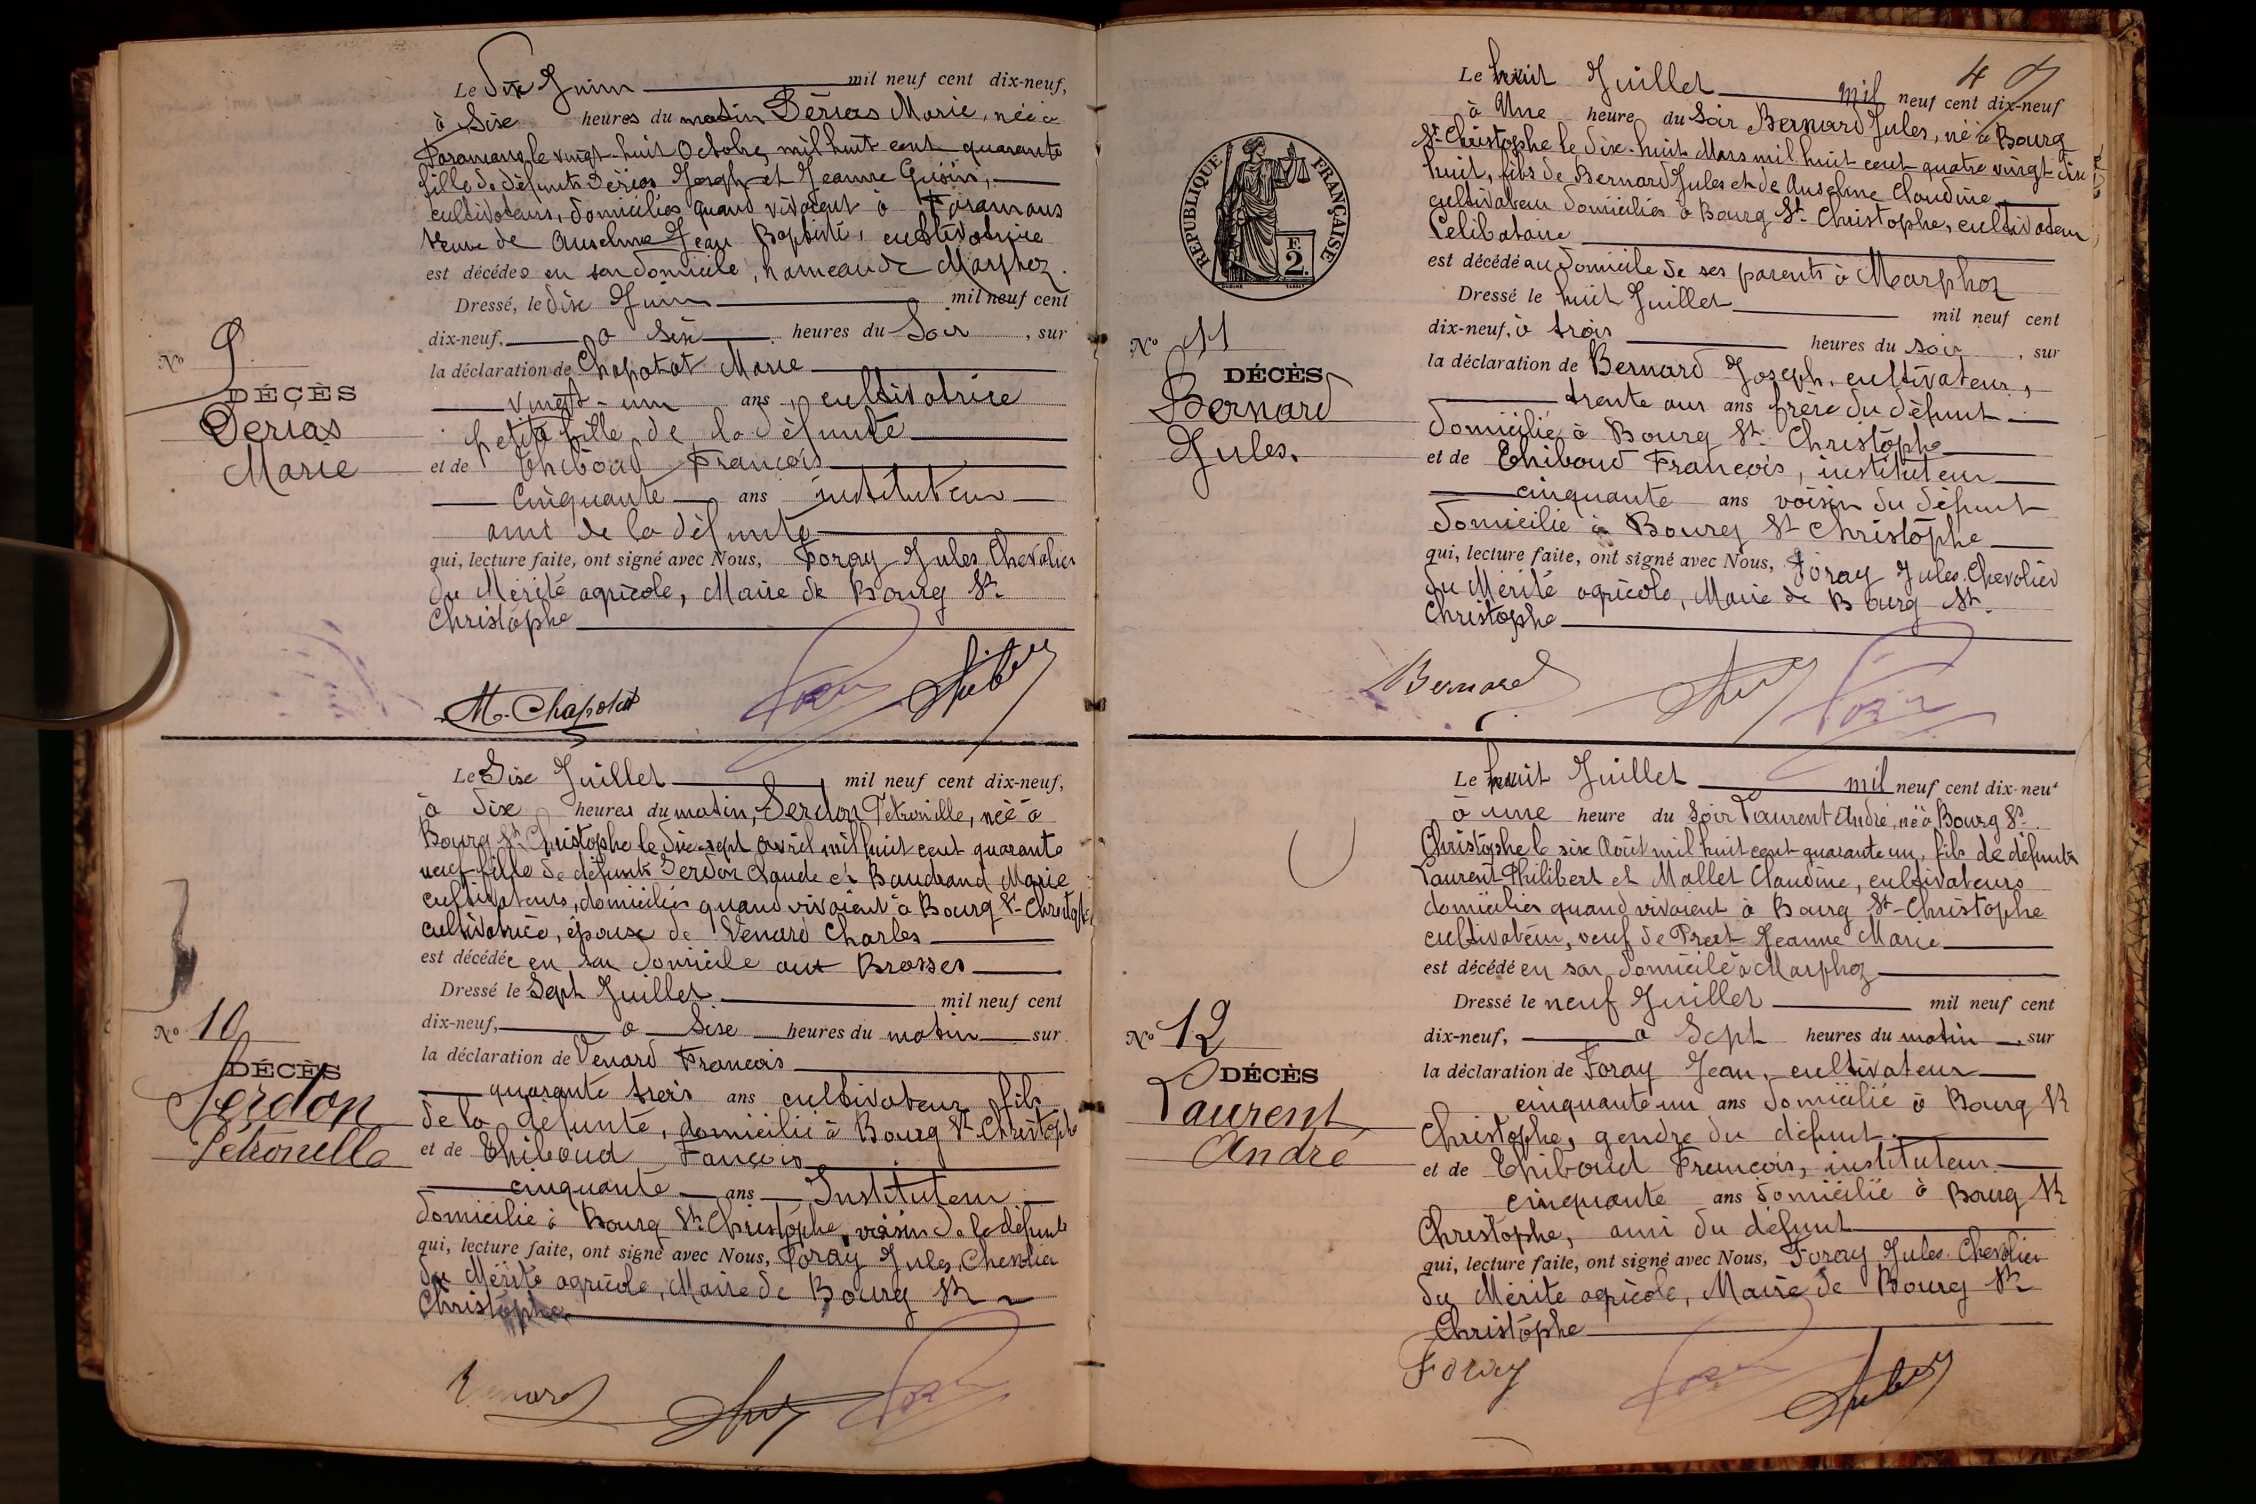 Le dix Juin mil neuf cent dix-neuf,
à Six heures du matin Dérias Marie, née à
Faramans le vingt-huit Octobre mil huit cent quarante
fille de défunts Dérias Joseph et Jeanne
cultivateurs, domiciliés quand vivaient à Faramans
Veuve de Anselme Jean Baptiste, cultivatrice
est décédée en son domicile, hameau de Marphoz.
Dressé, le dix Juin mil neuf cent
dix-neuf, à six heures du Soir, sur
la déclaration de Chapotat Marie
vingt-un ans, cultivatrice
petite fille de la défunte
et de Thiboud François
cinquante ans instituteur
ami de la défunte
qui, lecture faite, ont signé avec Nous, Foray Jules Chevalier
du Mérite agricole, Maire de Bourg St
Christophe
No 9
DÉCÈS
Dérias
Marie
M. Chapotat
Le Six Juillet mil neuf cent dix-neuf,
à dix heures du matin, Serdon Pétronille, née à
Bourg St Christophe le dix-sept avril mil huit cent quarante
neuf fille de défunts Serdon Claude et Baudrand Marie
cultivateurs, domiciliés quand vivaient à Bourg St-Christophe
cultivatrice, épouse de Venard Charles
est décédée en son domicile aux Brosses
Dressé le Sept Juillet mil neuf cent
dix-neuf, à Six heures du matin sur
la déclaration de Venard François
quarante trois ans cultivateur fils
de la défunte, domicilié à Bourg St Christophe
et de Thiboud Fançois
cinquante ans Instituteur
domicilié à Bourg St Christophe, voisin de la défunte
qui, lecture faite, ont signé avec Nous, Foray Jules, Chevalier
du Mérite agricole, Maire de Bourg St
Christophe
No 10
DÉCÈS
Serdon
Pétronelle
Venard
4
RÉPUBLIQUE FRANÇAISE
F.
2.
Le huit Juillet mil neuf cent dix-neuf
à Une heure du Soir Bernard Jules, né à Bourg
St Christophe le dix-huit Mars mil huit cent quatre vingt dix
huit, fils de Bernard Jules et de Anselme Claudine
cultivateurs domiciliés à Bourg St Christophe, cultivateur,
Célibataire
est décédé au domicile de ses parents à Marphoz
Dressé le huit Juillet mil neuf cent
dix-neuf, à trois heures du soir, sur
la déclaration de Bernard Joseph, cultivateur,
trente ans frère du défunt
domicilié à Bourg St Christophe
et de Thiboud François, instituteur
cinquante ans voisin du défunt
domicilié à Bourg St Christophe
qui, lecture faite, ont signé avec Nous, Foray Jules Chevalier
du Mérite agricole, Maire de Bourg St
Christophe
No 11
DÉCÈS
Bernard
Jules.
Bernard
Le huit Juillet mil neuf cent dix-neuf
à une heure du Soir Laurent André, né à Bourg St
Christophe le six Août mil huit cent quarante un, fils de défunts
Laurent Philibert et Mallet Claudine, cultivateurs
domiciliés quand vivaient à Bourg St-Christophe
cultivateur, veuf de Jeanne Marie
est décédé en son domicile à Marphoz
Dressé le neuf Juillet mil neuf cent
dix-neuf, à Sept heures du matin, sur
la déclaration de Foray Jean, cultivateur
cinquante un ans domicilié à Bourg St
Christophe, gendre du défunt
et de Thiboud François, instituteur
cinquante ans domicilié à Bourg St
Christophe, ami du défunt
qui, lecture faite, ont signé avec Nous, Foray Jules Chevalier
du Mérite agricole, Maire de Bourg St
Christophe
No 12
DÉCÈS
Laurent
André
Foray